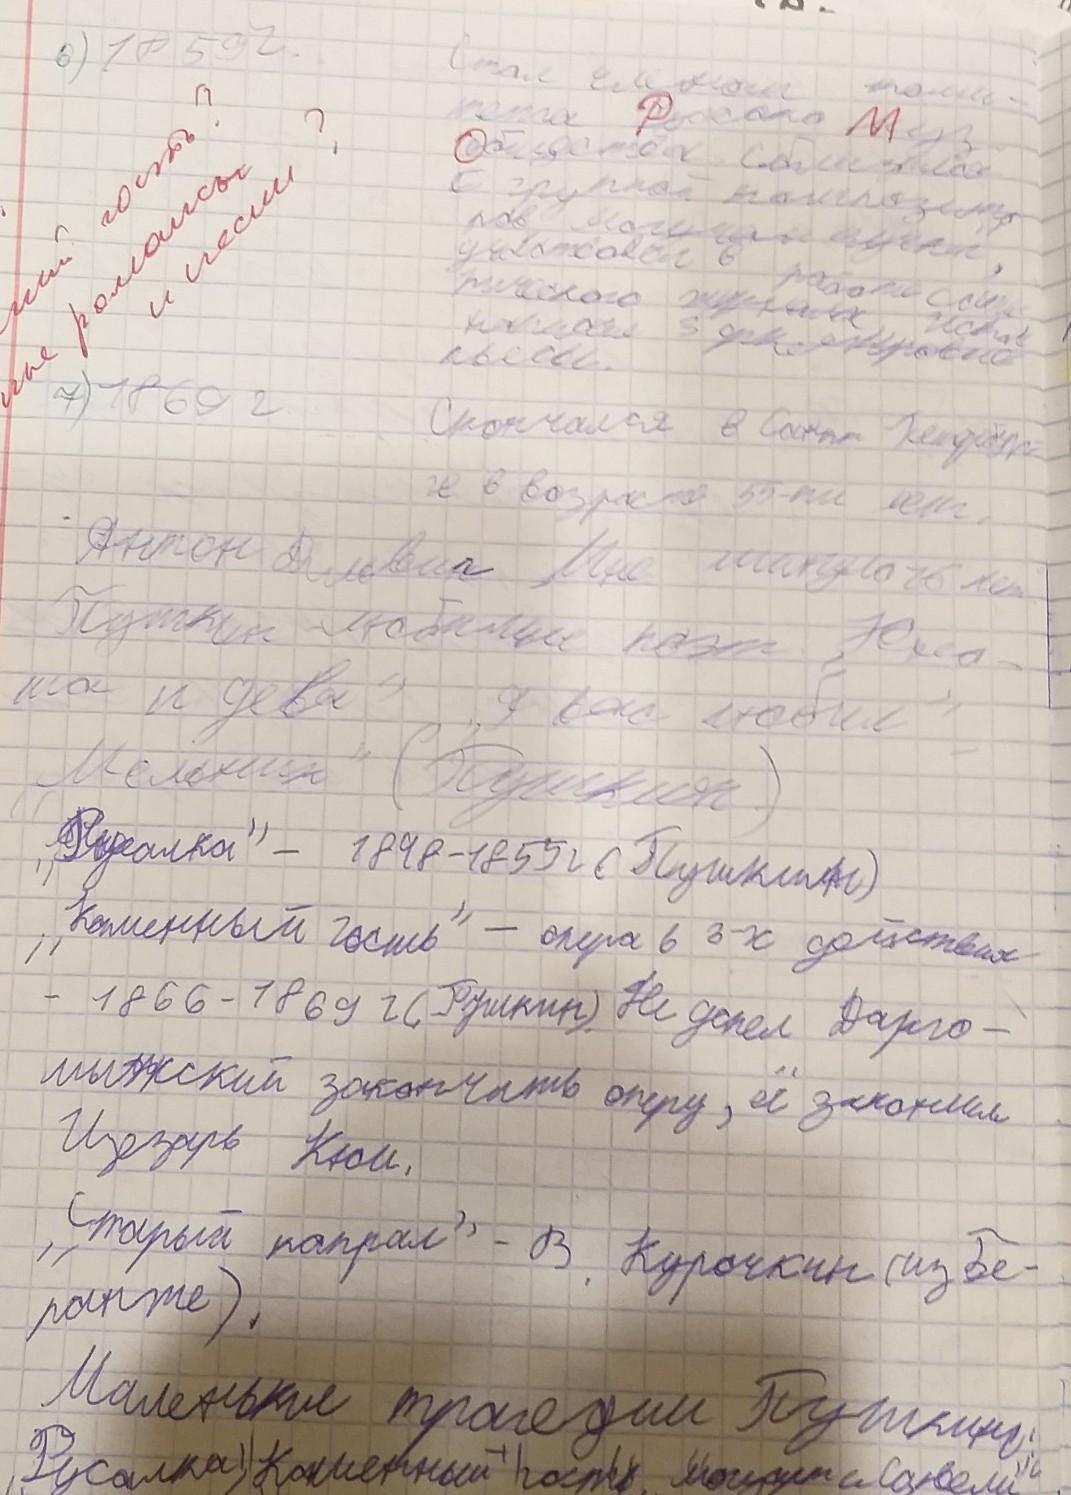 6) 1859г.
Стал членом коми-
тета Русского Муз.
Общества. Сблизился
с группой композито
ров могучая кучка,
участвовал в работе сати
рического журнала Искра
написал 3 для оркестровые
пьесы.
ный гость?
ные романсы
и песни?
7) 1869 г
Скончался в Санкт Петербур
ге в возрасте 55-ти лет.
Антон Дельвиг Мне минуло 16 лет
Пушкин - любимые поэт „Юно-
ша и дева" „Я вас любил"
„Мельник" (Пушкин)
„Русалка" - 1848-1855г (Пушкин)
„Каменный гость" - опера в 3-х действиях
- 1866-1869 г (Пушкин). Не успел Дарго-
мыжский закончить оперу, её закончил
Цезарь Кюи.
„Старый капрал" - В. Курочкин (из Бе-
ранже).
Маленькие трагедии Пушкина:
„Русалка", „Каменный гость", Моцарт и Сальери"